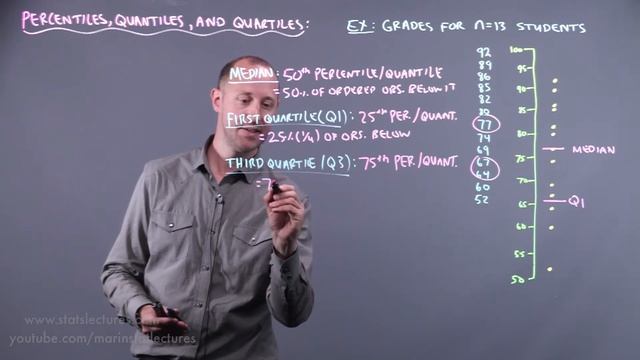 PERCENTILES, QUANTILES, AND QUARTILES:
EX: GRADES FOR n=13 STUDENTS
MEDIAN: 50th PERCENTILE/QUANTILE
= 50% OF ORDERED OBS. BELOW IT
FIRST QUARTILE (Q1): 25th PER./QUANT.
= 25% (1/4) OF OBS. BELOW
THIRD QUARTIE (Q3): 75th PER./QUANT.
= 7
92
89
86
85
82
80
77
74
69
67
64
60
52
100
95
90
85
80
75
70
65
60
55
50
MEDIAN
Q1
www.statslectures.
youtube.com/marinstatlectures